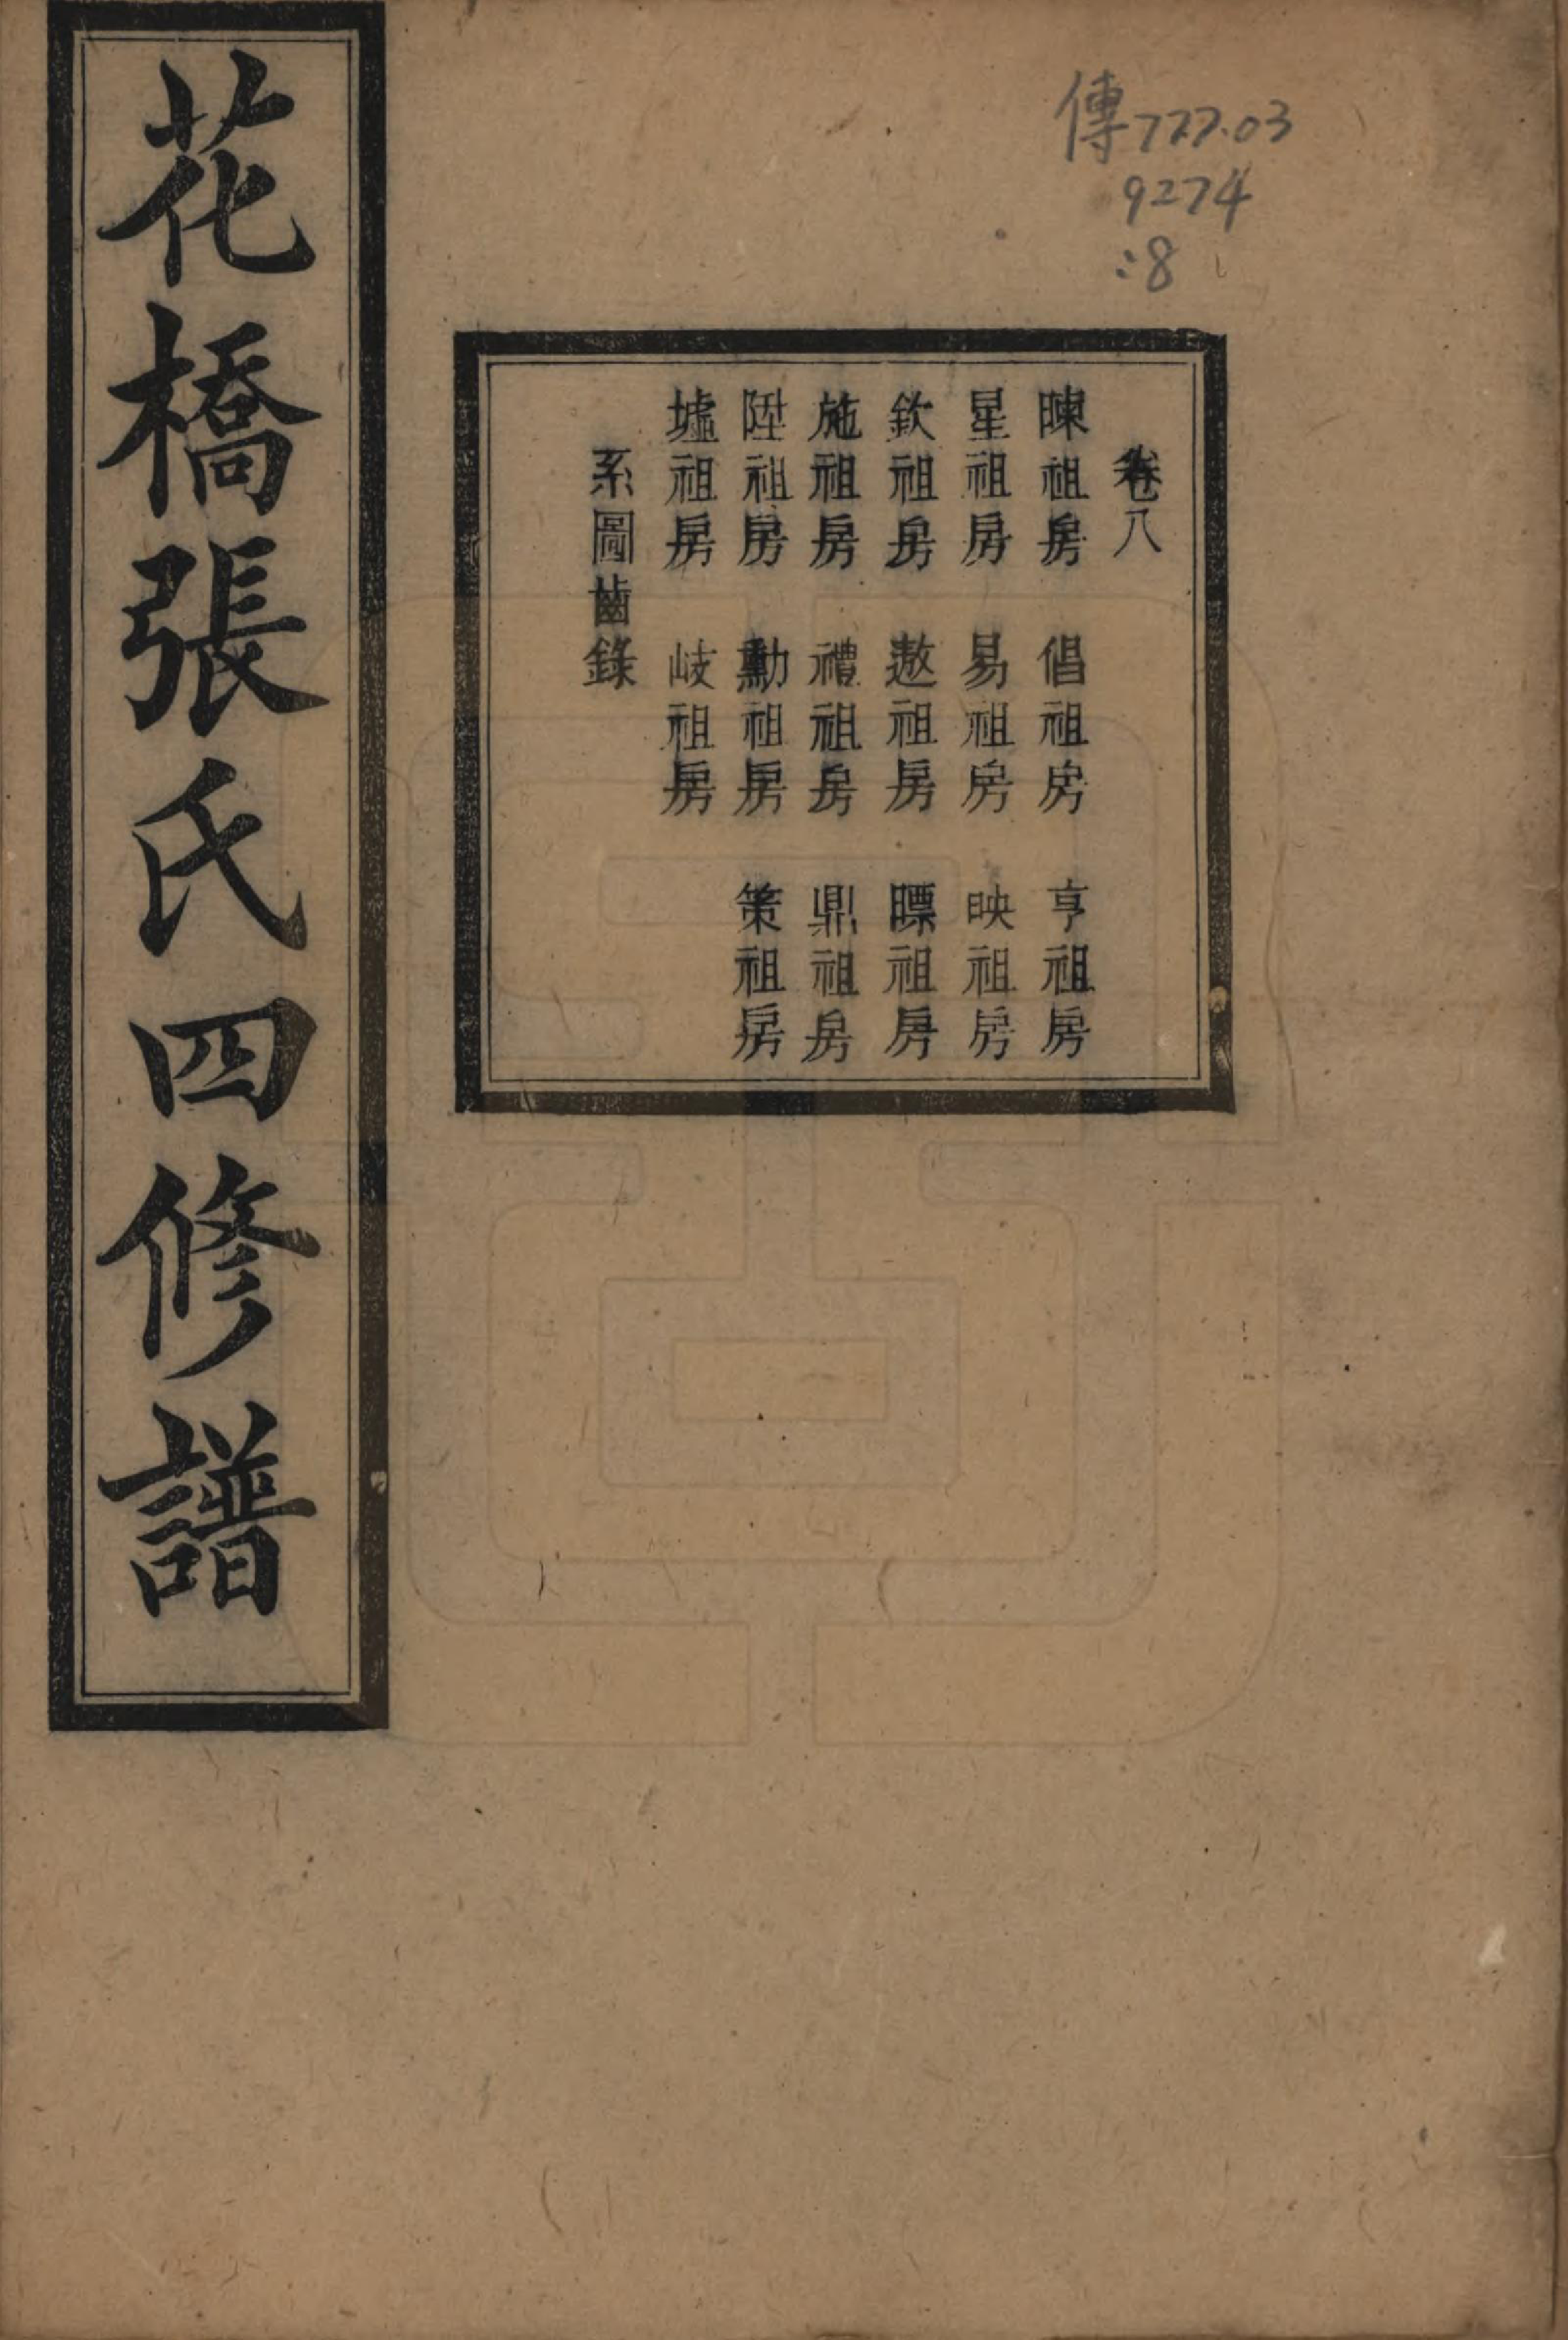 傳777.03
9274
:8
卷八
暕祖房 倡祖房 亨祖房
星祖房 易祖房 映祖房
欽祖房 遨祖房 瞟祖房
施祖房 禮祖房 鼎祖房
陞祖房 勳祖房 策祖房
墟祖房 岐祖房
系圖齒錄
花橋張氏四修譜